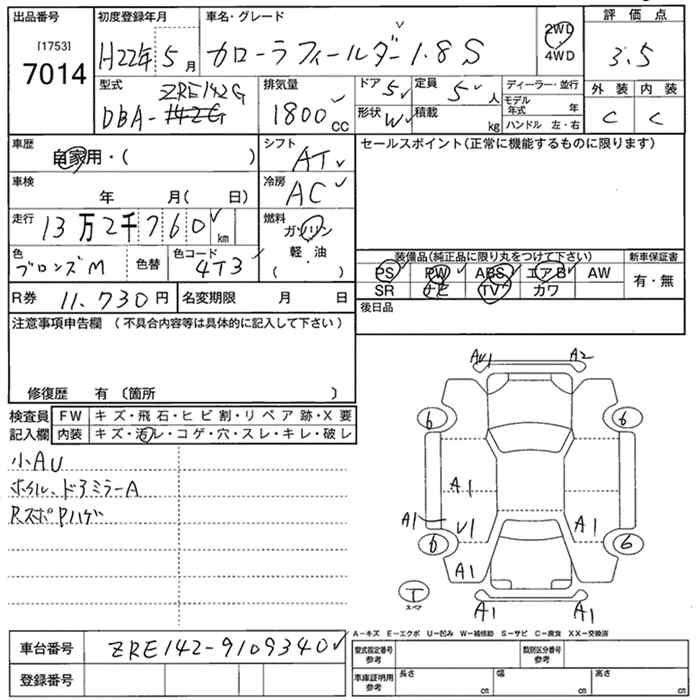 出品番号
[1753]
7014
初度登録年月
H22年5月
車名・グレード
カローラフィールダー1.8S
2WD
4WD
評価点
3.5
外装 内装
C C
型式
ZRE142G
DBA-
排気量
1800cc
ドア 5
形状 W
定員 5人
積載 kg
ディーラー・並行
モデル年式 年
ハンドル 左・右
車歴
自家用・( )
シフト
AT
セールスポイント(正常に機能するものに限ります)
車検
年 月( 日)
冷房
AC
走行
13万2千760km
燃料
ガソリン
軽油
( )
色
ブロンズM
色替
色コード
4T3
装備品(純正品に限り丸をつけて下さい)
PS PW ABS エアB AW
SR ナビ TV カワ
新車保証書
有・無
R券 11,730円
名変期限 月 日
後日品
注意事項申告欄 (不具合内容等は具体的に記入して下さい)
修復歴 有 (箇所 )
検査員記入欄
FW キズ・飛石・ヒビ割・リペア跡・X要
内装 キズ・汚レ・コゲ・穴・スレ・キレ・破レ
小AU
ホイル、ドアミラーA
RスポPハゲ
AU1 A2
6 6
A1
A1 U1 A1
6 6
A1
T
スペア
A1 A1
A−キズ E−エクボ U−凹み W−補修跡 S−サビ C−腐食 XX−交換済
車台番号
ZRE142-9109340
登録番号
型式指定番号
参考
類別区分番号
参考
車庫証明用
参考
長さ cm
幅 cm
高さ cm